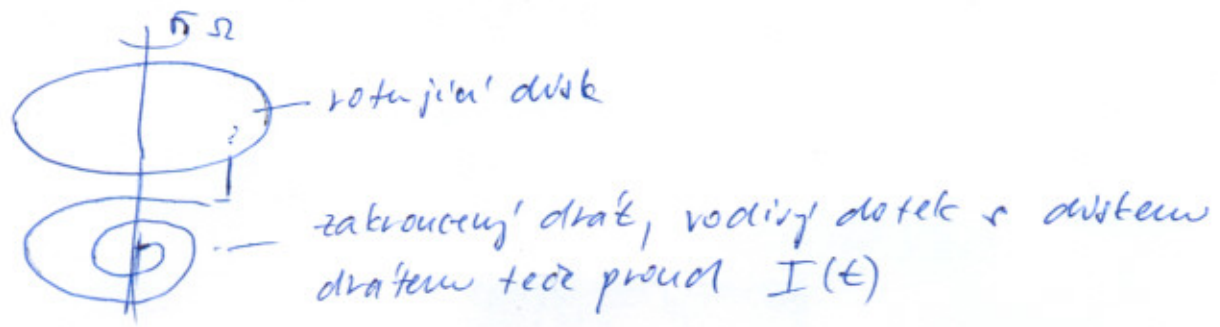 Ω
rotující disk
?
zakroucený drát, vodivý dotek s diskem
drátem teče proud I(t)